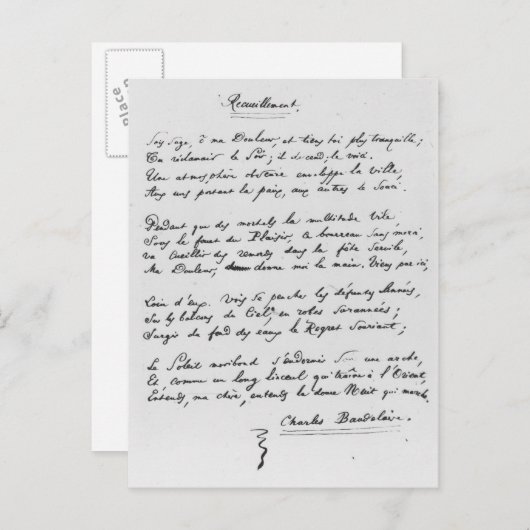 Recueillement.
Sois sage, ô ma Douleur, et tiens toi plus tranquille;
Tu réclamais le Soir; il descend; le voici.
Une atmosphère obscure enveloppe la ville,
Aux uns portant la paix, aux autres le Souci.
Pendant que des mortels la multitude vile,
Sous le fouet du Plaisir, ce bourreau sans merci
va cueillir des remords dans la fête servile,
Ma Douleur, donne moi la main. Viens par ici,
Loin d'eux. Vois se pencher les défuntes Années,
Sur les balcons du Ciel, en robes surannées;
Surgir du fond des eaux le Regret Souriant;
Le Soleil moribond s'endormir sous une arche,
Et comme un long linceul qui traîne à l'Orient,
Entends, ma chère, entends la douce Nuit qui marche.
Charles Baudelaire.